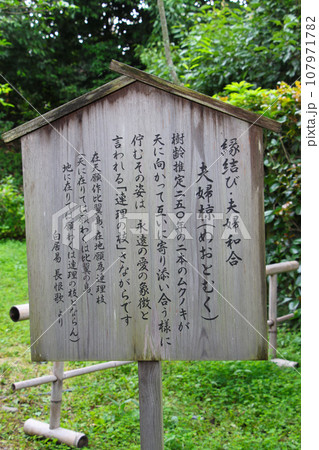 縁結び・夫婦和合
夫婦椋(めおとむく)
樹齢推定二五〇年の二本のムクノキが
天に向かって互いに寄り添い合う様に
佇むその姿は、永遠の愛の象徴と
言われる「連理の枝」さながらです
在天願作比翼鳥 在地願為連理枝
(天に在りては願わくは比翼の鳥、
地に在りては願わくは連理の枝とならん)
白居易 長恨歌 より
PIXTA
pixta.jp - 107971782